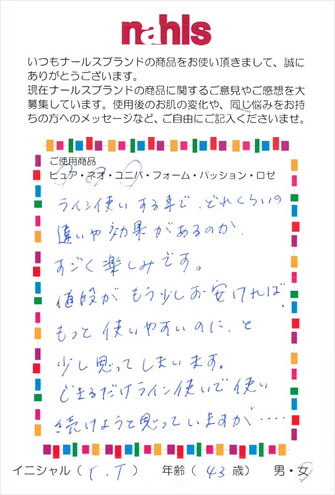 nahls
いつもナールスブランドの商品をお使い頂きまして、誠に
ありがとうございます。
現在ナールスブランドの商品に関するご意見やご感想を大
募集しています。使用後のお肌の変化や、同じ悩みをお持
ちの方へのメッセージなど、ご自由にご記入くださいませ。
ご使用商品
ピュア・ネオ・ユニバ・フォーム・パッション・ロゼ
ライン使いする事で、どれくらいの
違いや効果があるのか、
すごく楽しみです。
値段がもう少しお安ければ、
もっと使いやすいのに、と
少し思ってしまいます。
できるだけライン使いで使い
続けようと思っていますが……
イニシャル( T.T ) 年齢( 43 歳) 男・女